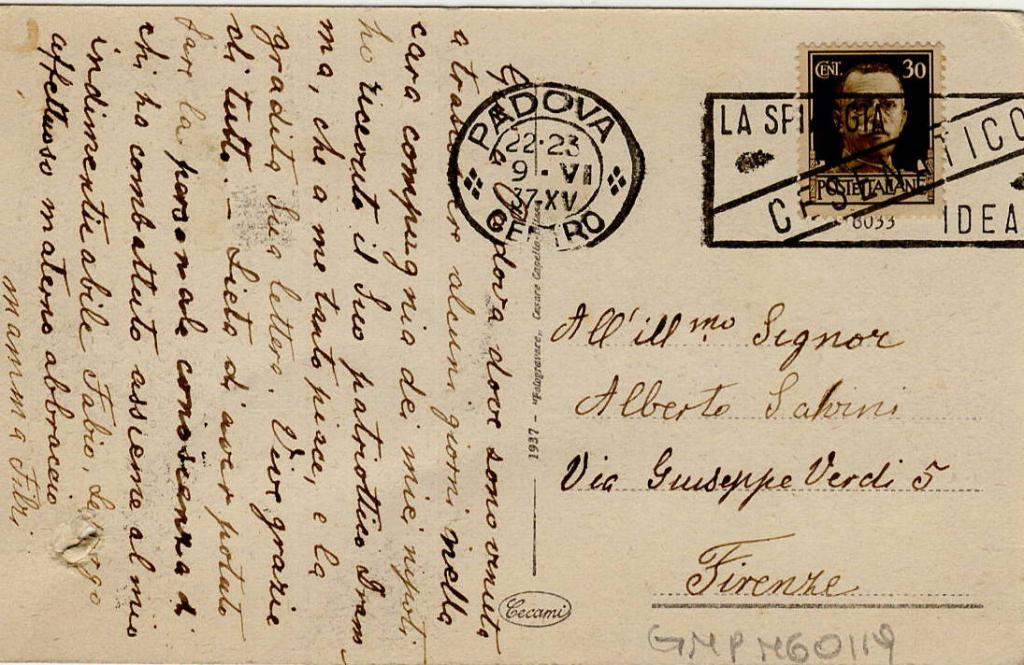 Qua a Padova dove sono venuta
a trascorrere alcuni giorni nella
cara compagnia dei miei nipoti,
ho ricevuto il Suo patriottico Dram
ma, che a me tanto piace, e la
gradita Sua lettera. Vive grazie
di tutto. – Lieta di aver potuto
fare la personale conoscenza di
chi ha combattuto assieme al mio
indimenticabile Fabio, Le porgo
affettuoso materno abbraccio
mamma Filzi
PADOVA
22·23
9·VI
37·XV
CENTRO
CENT. 30
POSTE ITALIANE
LA SPIAGGIA
IDEA
8033
1937 – "Fotogravure„ Cesare Capello
Cecami
All'ill.mo Signor
Alberto Salvini
Via Giuseppe Verdi 5
Firenze
GMPM60119